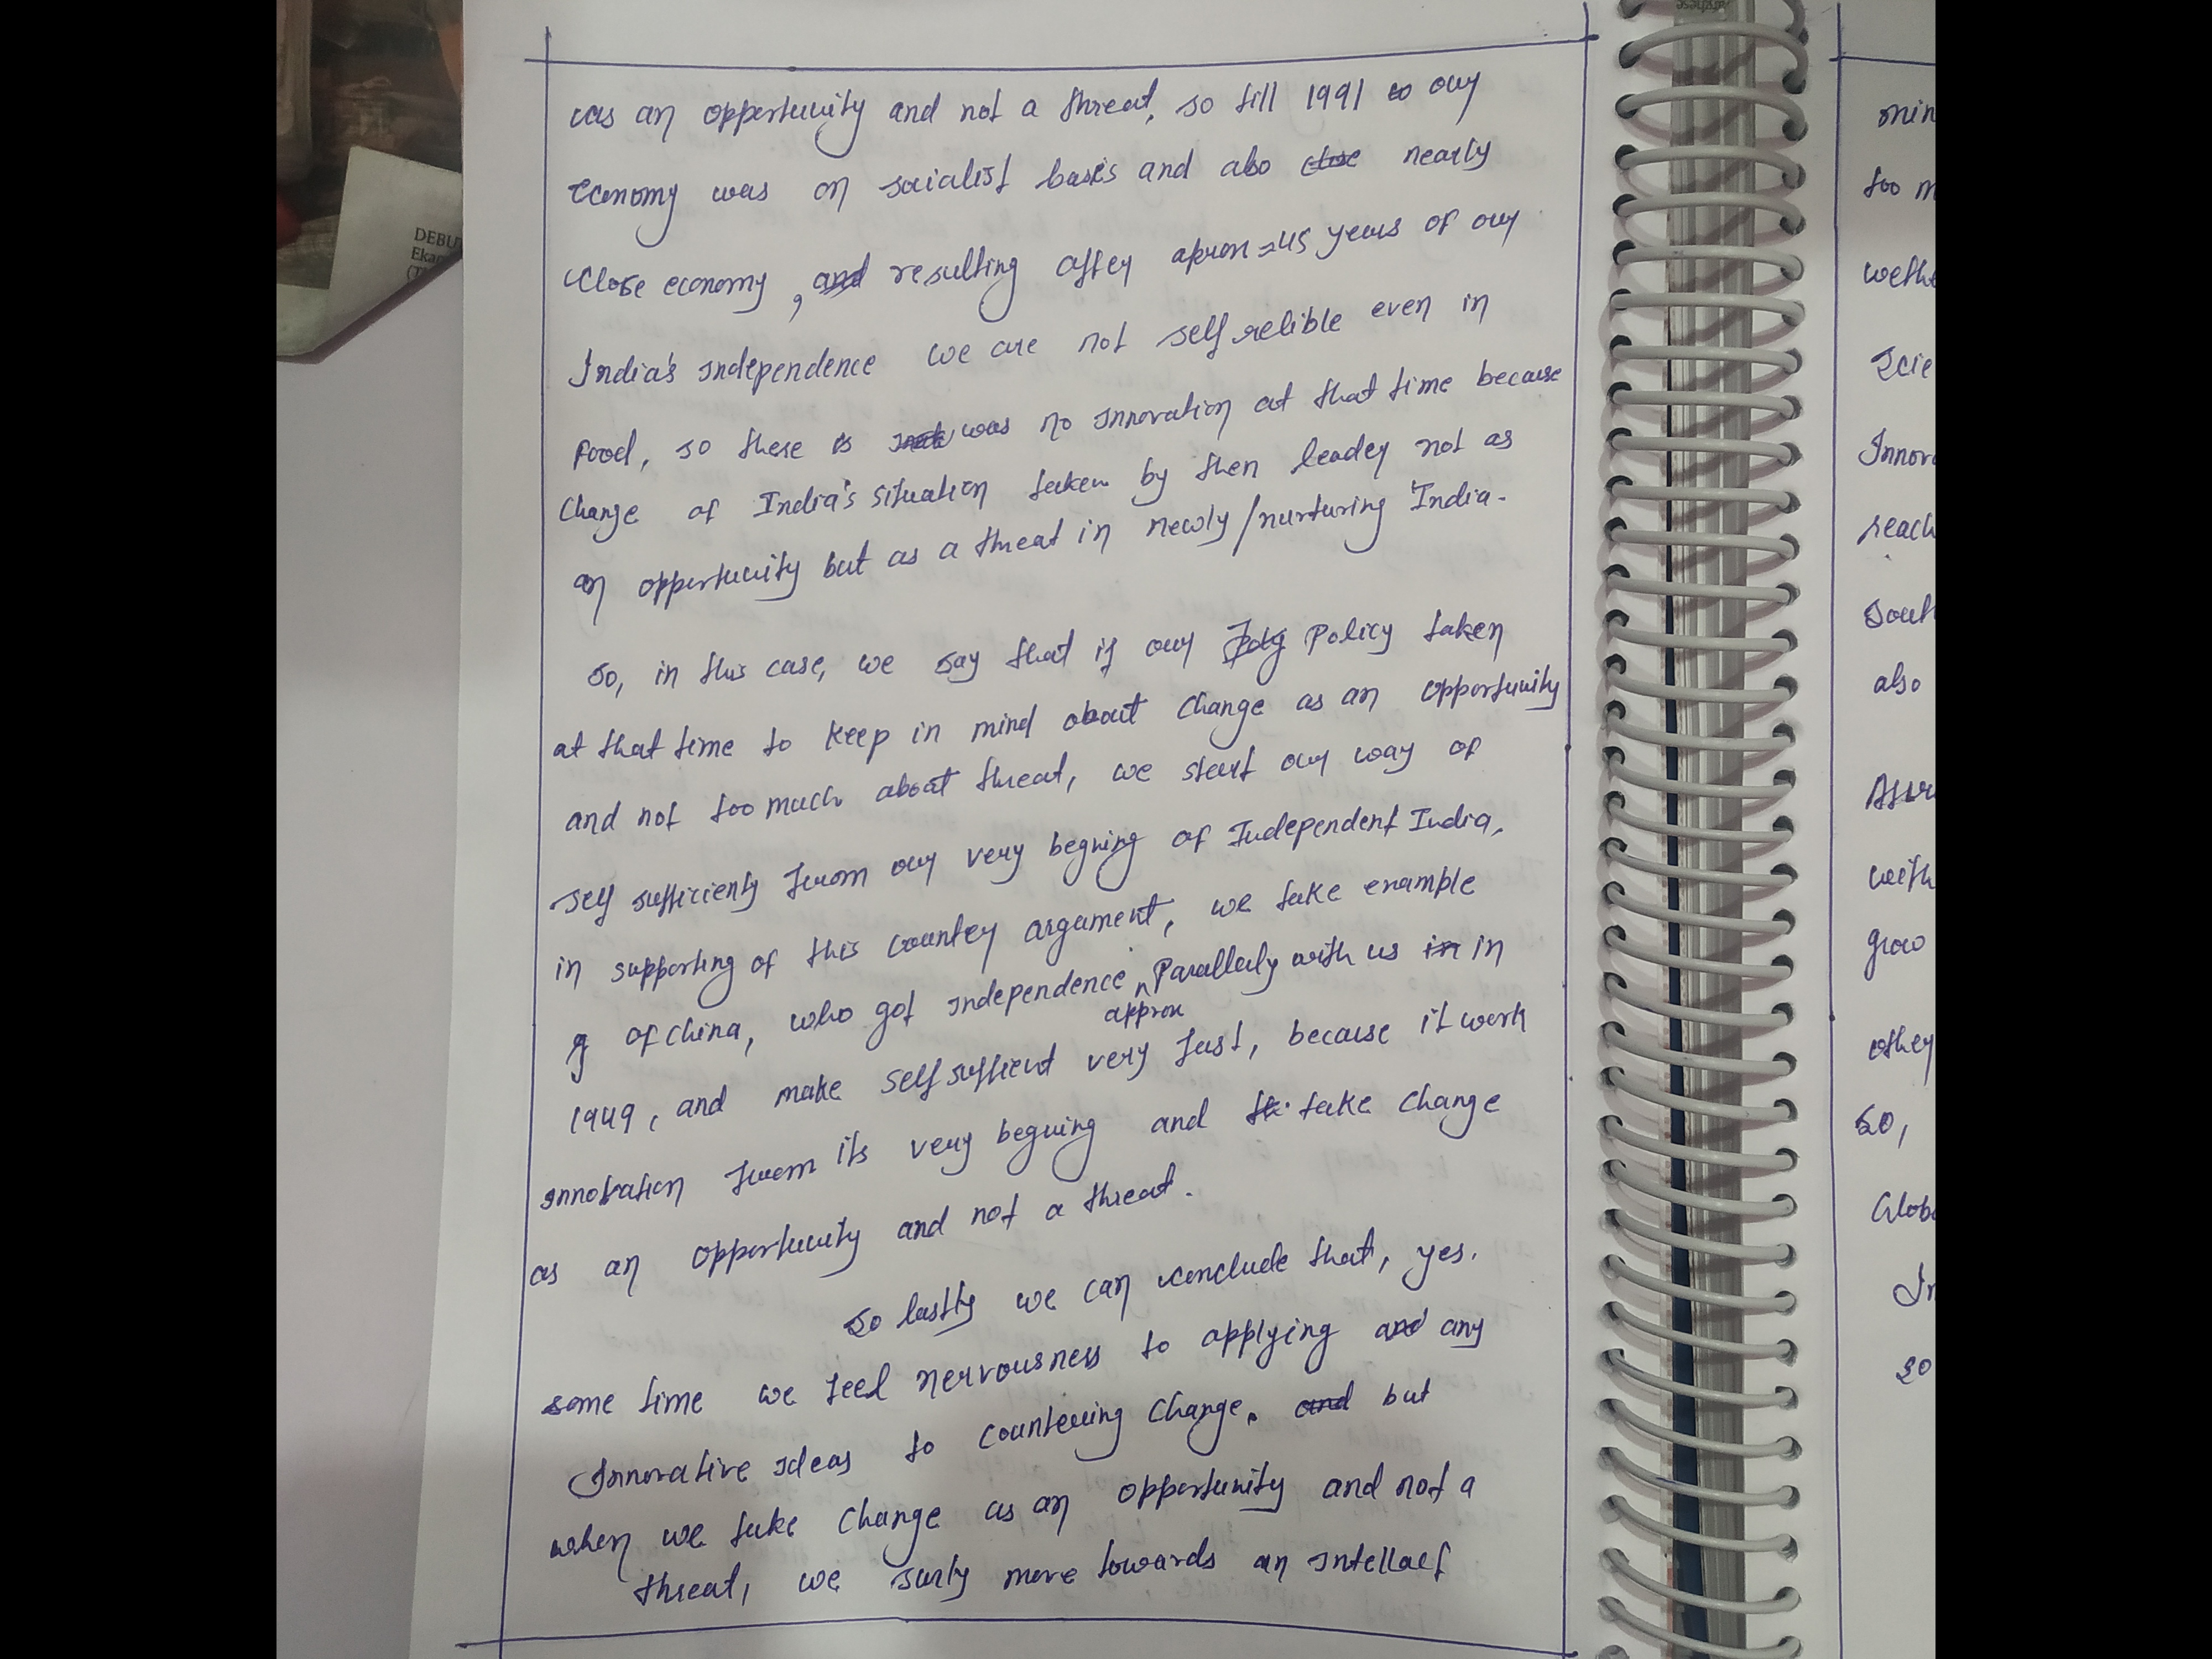 was an opportunity and not a threat, so till 1991 so our
economy was on socialist basis and also close nearly
close economy, and resulting after aprox 45 years of our
India's Independence we are not self relible even in
Food, so there is was no Innovation at that time because
Change of India's situation taken by then leader not as
an opportunity but as a threat in newly/nurturing India.
So, in this case, we say that if our Policy taken
at that time to keep in mind about change as an opportunity
and not too much about threat, we start our way of
self sufficienty from our very begning of Independent India,
in supporting of this counter argument, we take example
of China, who got independence approx Parallerly with us in in
1949, and make self suffient very fast, because it work
innovation from its very begning and take change
as an opportunity and not a threat.
So lastly we can conclude that, yes.
some time we feel nervousness to applying and any
Innovative ideas to countering change. and but
when we take change as an opportunity and not a
threat, we surly move towards an intellact
DEBU
Ekan
min
too m
Scie
Innov
reach
South
also
with
grow
other
So,
Glob
In
So